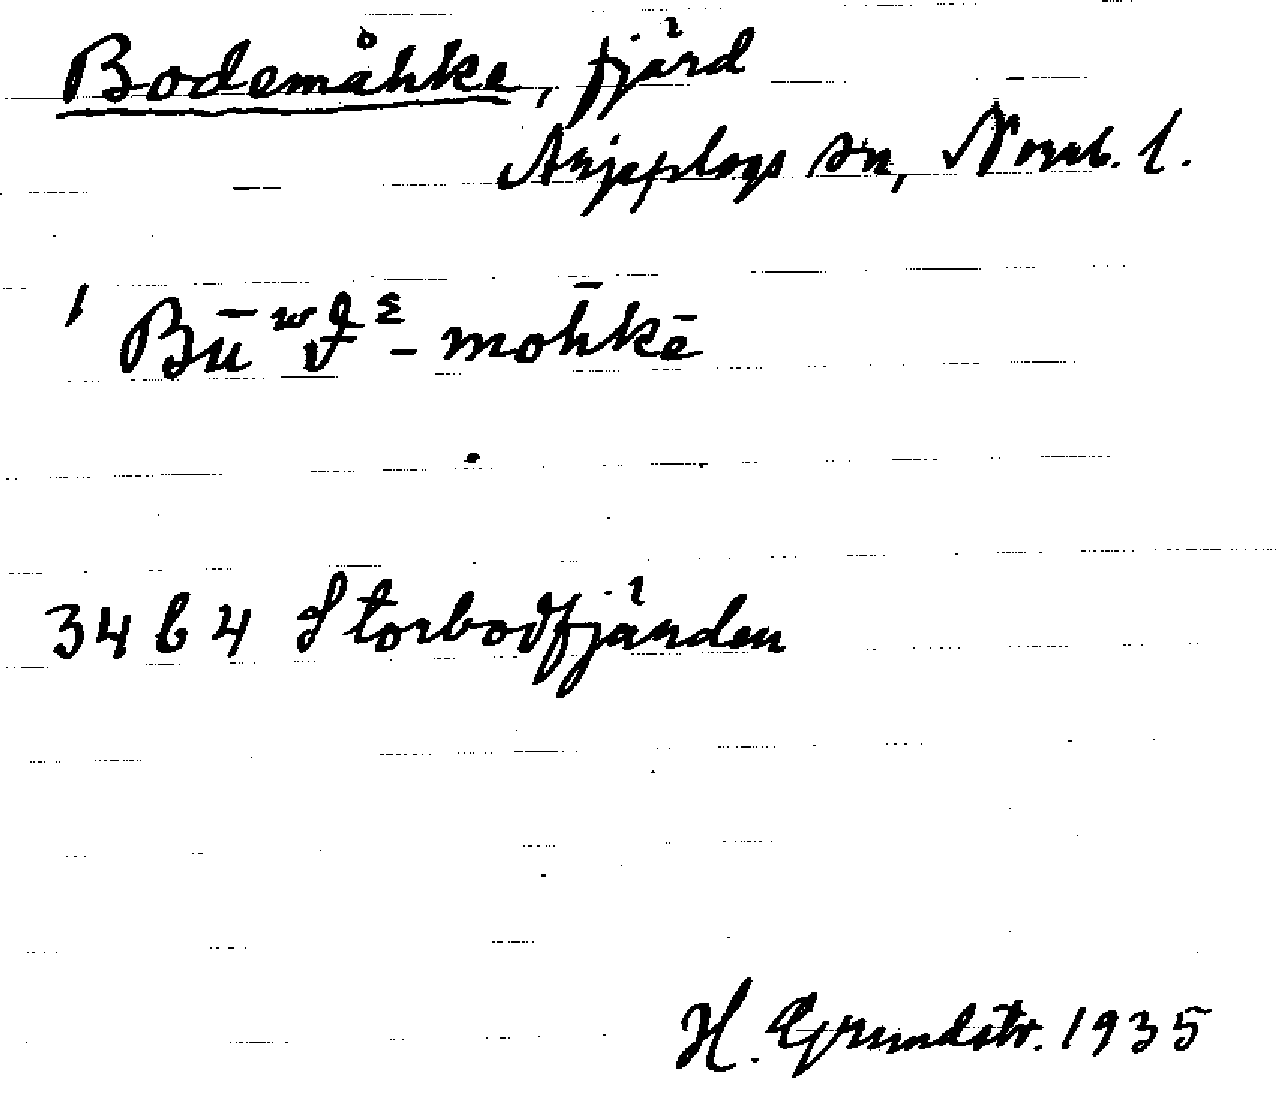 Bodemåhke, fjärd
Arjeplogs sn, Norrb. l.
3464 Storbodfjärden
H. Grundstr. 1935